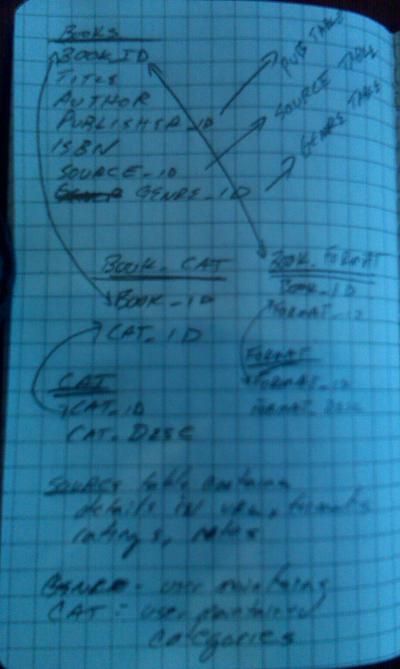 BOOKS
BOOK_ID
TITLE
AUTHOR
PUBLISHER_ID
ISBN
SOURCE_ID
GENRE_ID
PUB TABLE
SOURCE TABLE
GENRE TABLE
BOOK_CAT
BOOK_ID
CAT_ID
BOOK_FORMAT
BOOK_ID
FORMAT_ID
FORMAT
FORMAT_ID
FORMAT_DESC
CAT
CAT_ID
CAT_DESC
SOURCE table contains
details
ratings, notes
GENRE - user maintains
CAT = user maintained
categories